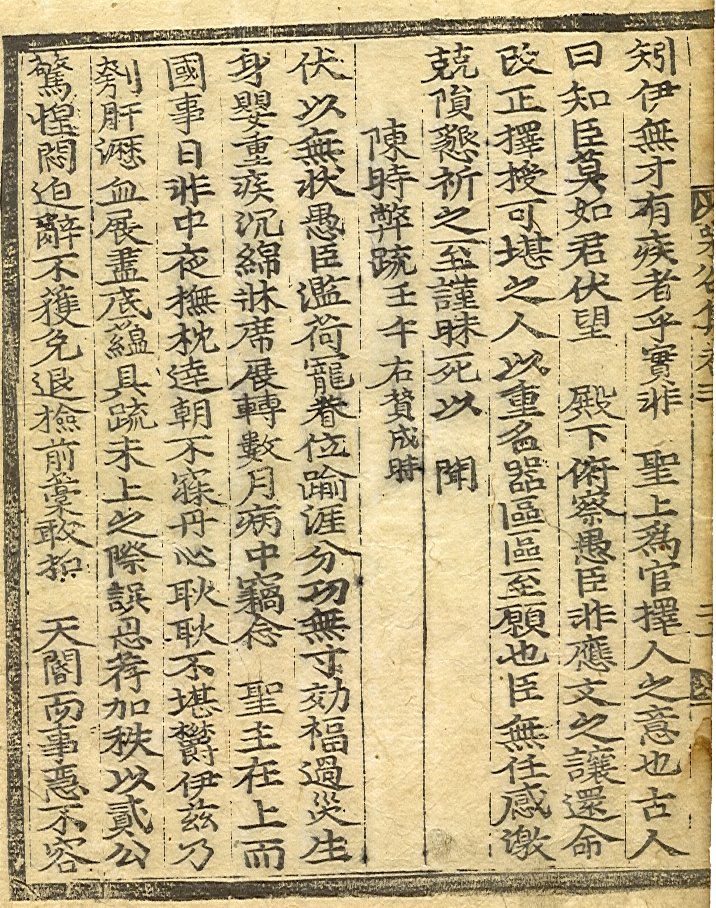 矧伊無才有疾者乎實非　聖上爲官擇人之意也古人
曰知臣莫如君伏望　殿下俯察愚臣非應文之讓還命
改正擇授可堪之人以重名器區區至願也臣無任感激
兢隕懇祈之至謹昧死以　聞
陳時弊疏壬午右贊成時
伏以無狀愚臣濫荷寵眷位踰涯分功無寸効福過災生
身嬰重疾沉綿牀席展轉數月病中竊念　聖主在上而
國事日非中夜撫枕達朝不寐丹心耿耿不堪鬱伊玆乃
刳肝瀝血展盡底蘊具疏未上之際誤恩荐加秩以貳公
驚惶悶迫辭不獲免退檢前藁敢扣　天閽而事急不容